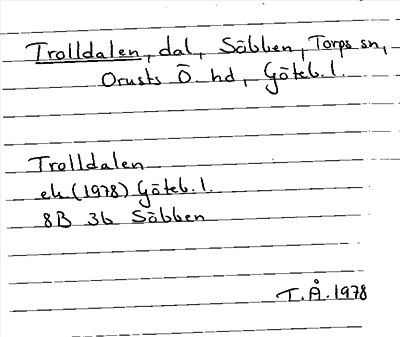 Trolldalen, dal, Säbben, Torps sn,
Orusts Ö hd, Göteb. l.
Trolldalen
ek (1978) Göteb. l.
8B 3b Säbben
T.Å. 1978